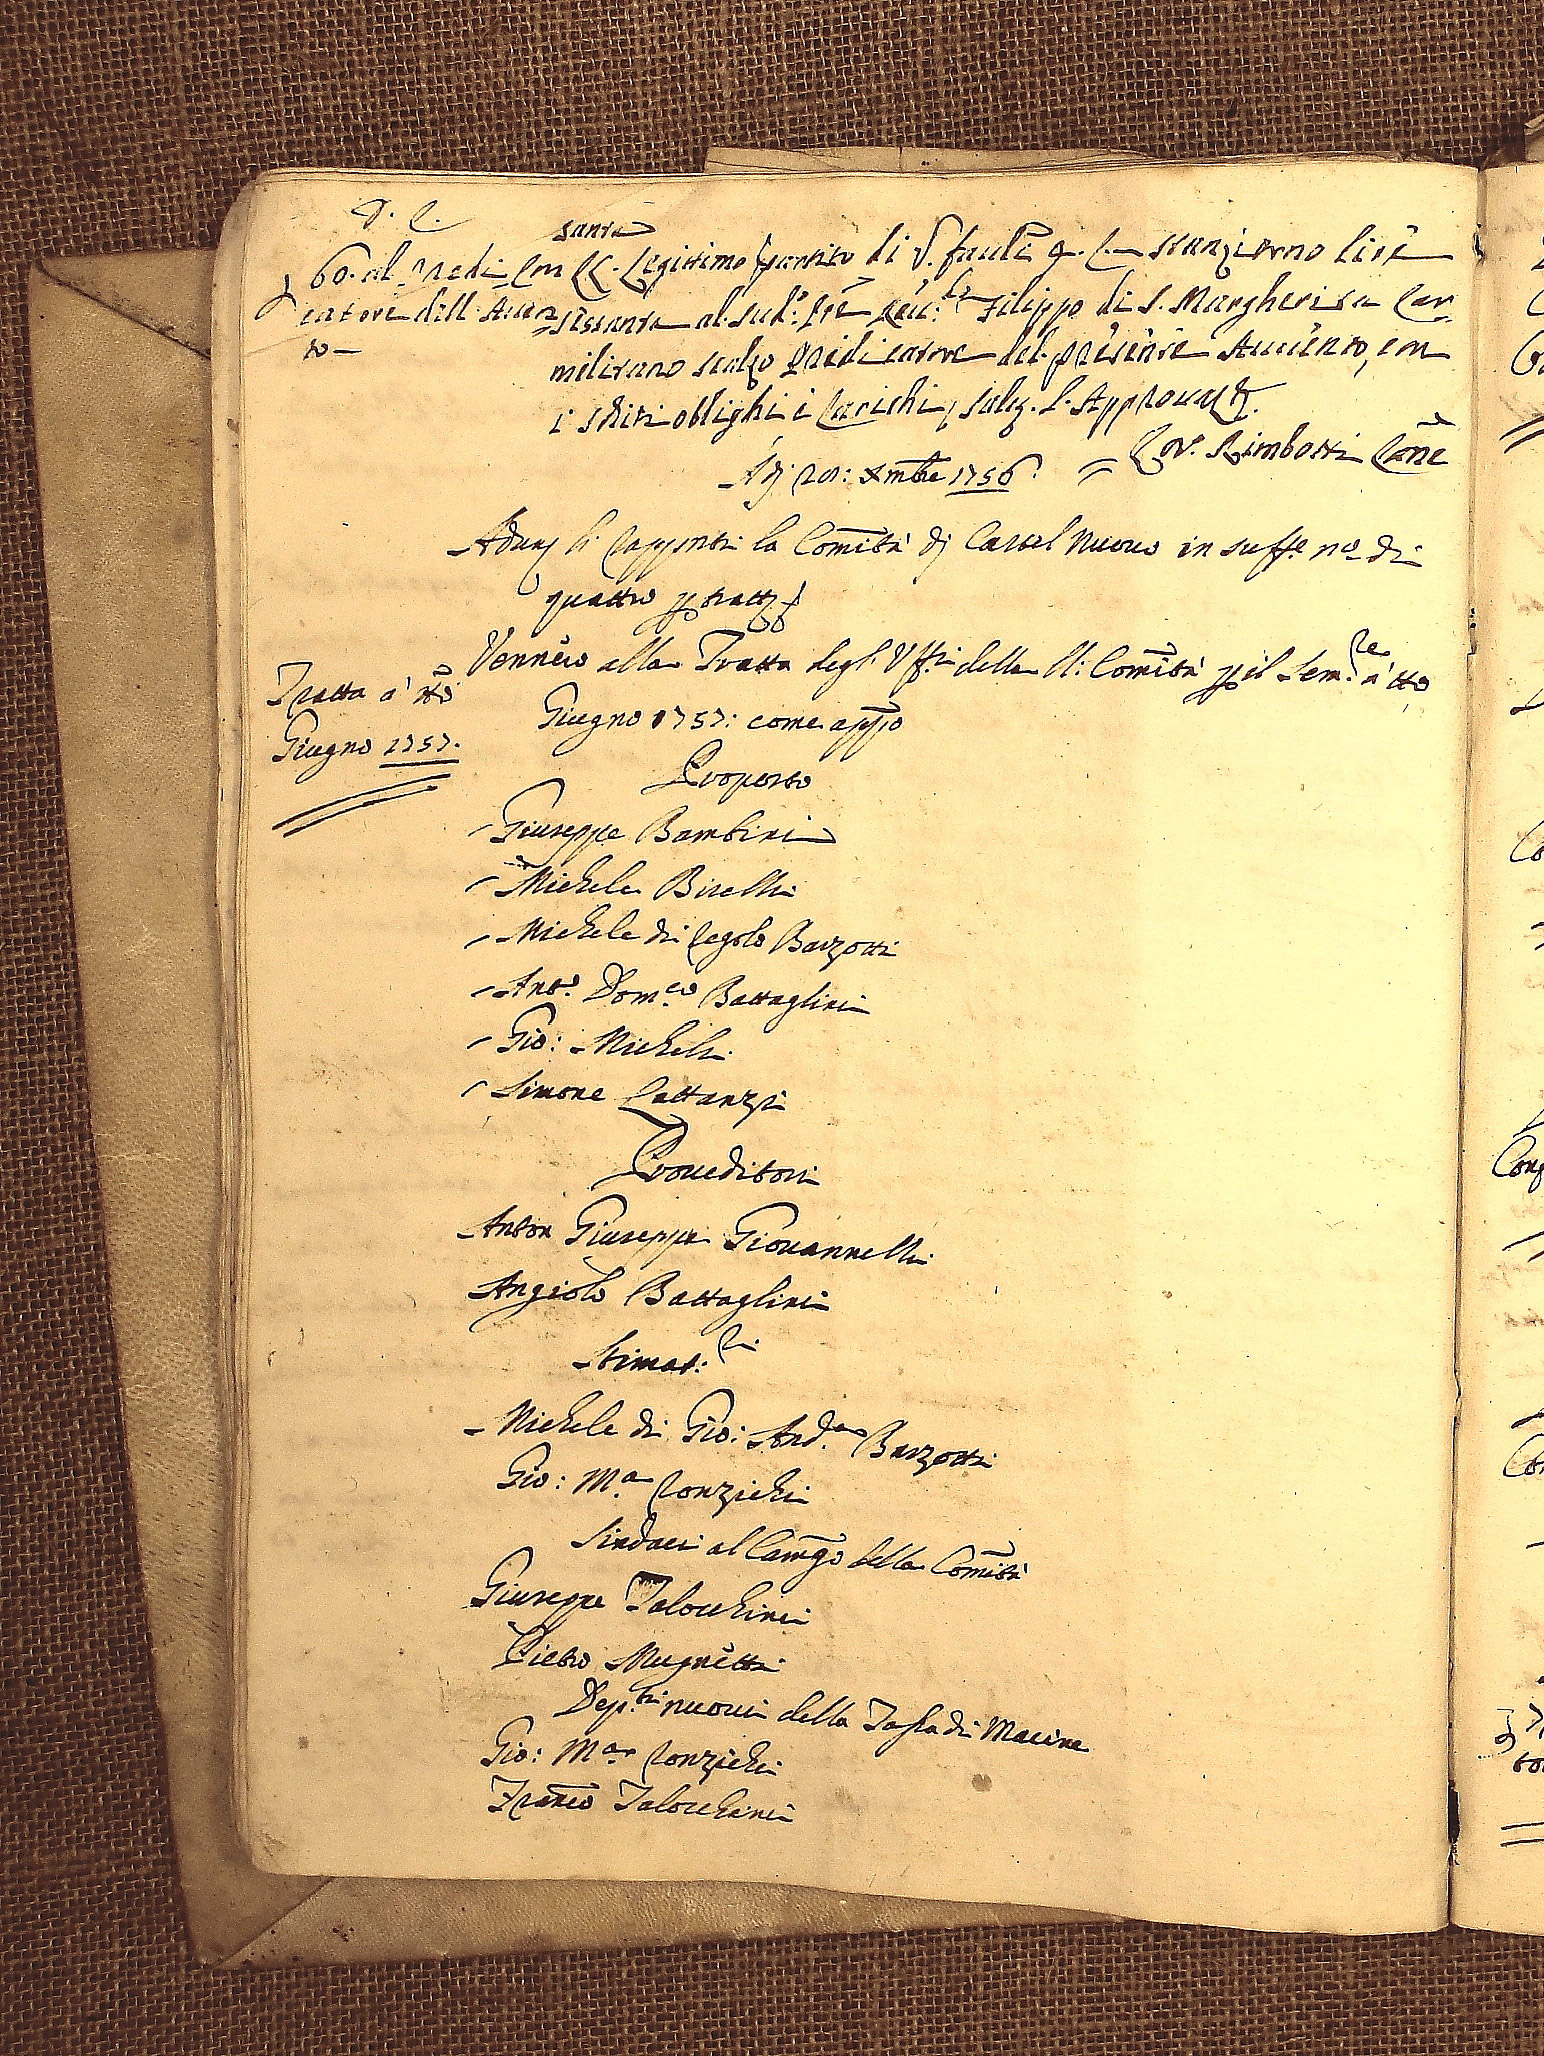 60. al Predi
catore dell' Auuen
to
santa
Con Legittimo partito di V. faubi g. C. stanziorno lire
sessanta al Sud: Pre Filippo di S. Margherita Car
melitano scalzo Predicatore del presente Auuento, con
i soliti oblighi i Carichi, salu. l. Approuaz.
Cav. Rimbotti Canc
Adj 20: Xmbre 1756
Adun li Rappnti la Comità dj Castel Nuouo in suffe no di
quattro p tratto
Tratta a tto
Giugno 1757.
Vennero alla Tratta degl' Uffzi della d: Comità p il Sem.re a tto
Giugno 1757: come appo
Proposto
Giuseppe Bambini
Michele Birelli
Michele di Regolo Barzotti
Anto. Dom.co Battaglini
Gio: Micheli
Simone Lattanzi
Proueditori
Anton Giuseppe Giouannelli
Angiolo Battaglini
Stimat:ri
Michele di Gio: And.a Barzotti
Gio: M.a Ronzichi
Sindaci al Camgo della Comità
Giuseppe Talocchini
Pietro Mugnetti
Dep.ti nuoui della Tassa di Macine
Gio: M.a Ronzichi
Franco Talocchini